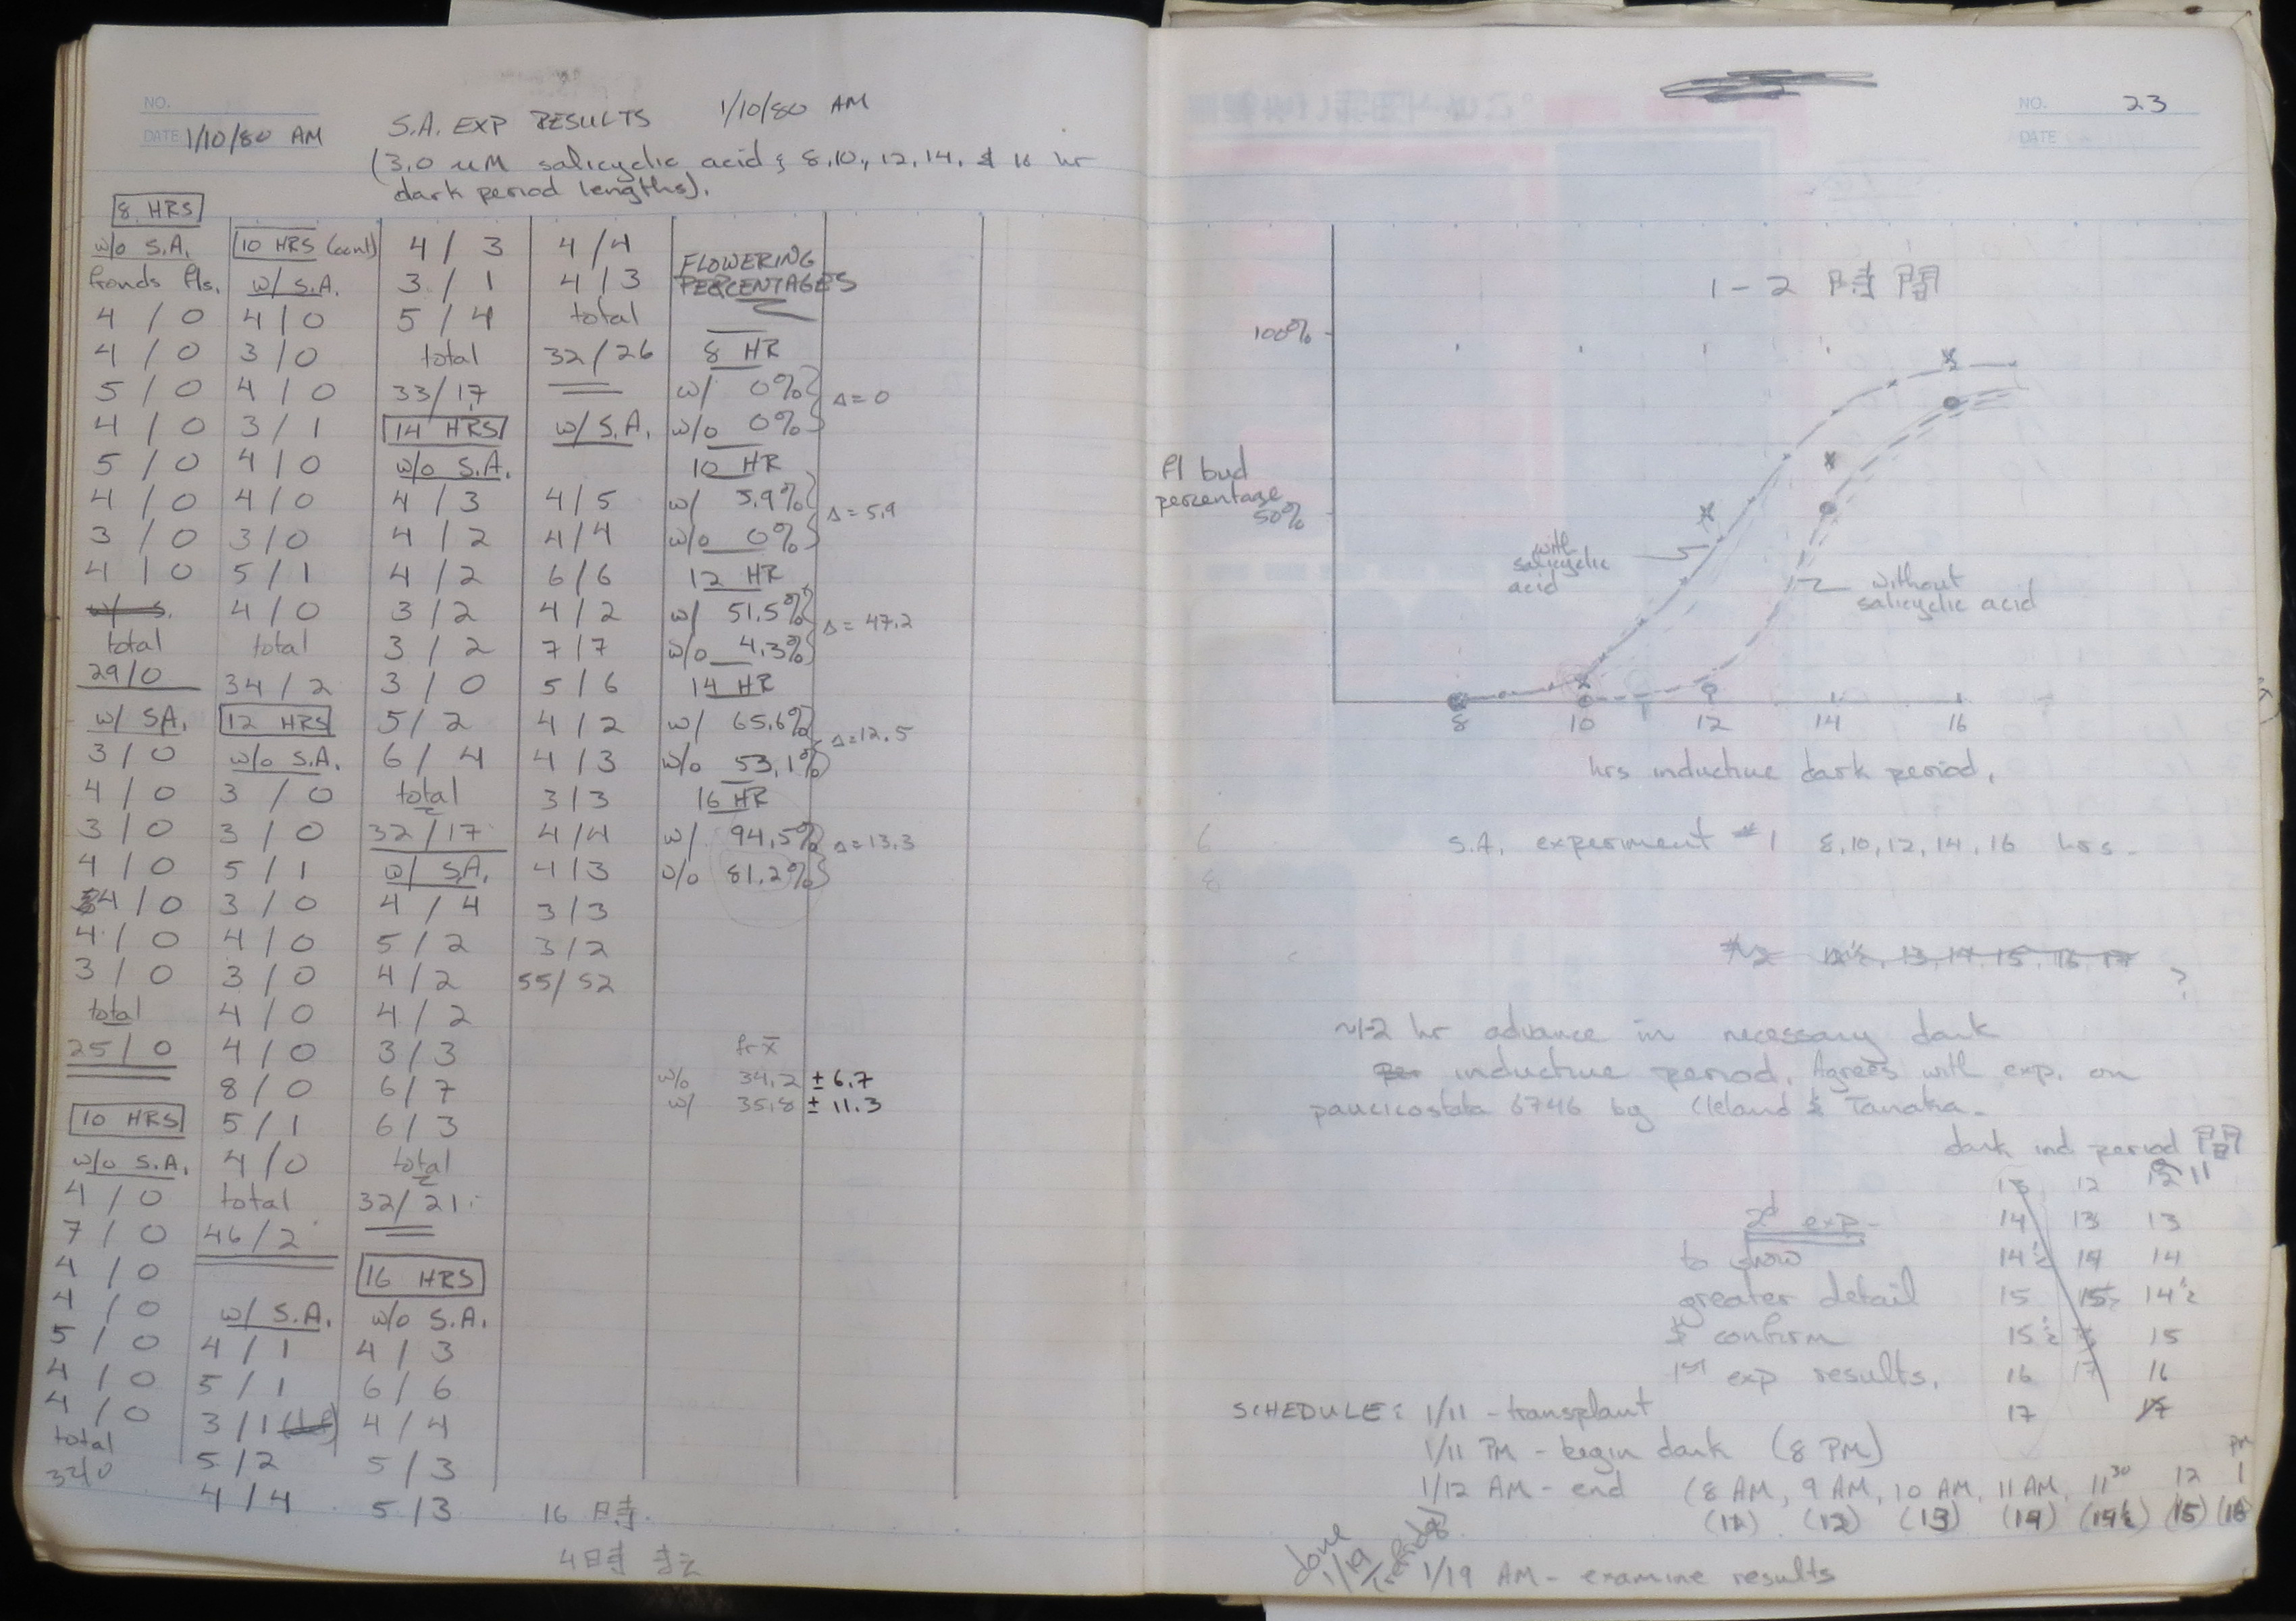 NO.
DATE 1/10/80 AM
S.A. EXP RESULTS 1/10/80 AM
(3.0 uM salicyclic acid & 8,10, 12, 14, & 16 hr
dark period lengths).
8 HRS
w/o S.A.
fronds fls.
4 / 0
4 / 0
5 / 0
4 / 0
5 / 0
4 / 0
3 / 0
4 / 0
w/ s.
total
29/0
w/ S.A.
3 / 0
4 / 0
3 / 0
4 / 0
4 / 0
4 / 0
3 / 0
total
25 / 0
10 HRS
w/o S.A.
4 / 0
7 / 0
4 / 0
4 / 0
5 / 0
4 / 0
4 / 0
total
32/0
10 HRS (cont)
w/ S.A.
4 / 0
3 / 0
4 / 0
3 / 1
4 / 0
4 / 0
3 / 0
5 / 1
4 / 0
total
34 / 2
12 HRS
w/o S.A.
3 / 0
3 / 0
5 / 1
3 / 0
4 / 0
3 / 0
4 / 0
4 / 0
8 / 0
5 / 1
4 / 0
total
46 / 2
w/ S.A.
4 / 1
5 / 1
3 / 1
5 / 2
4 / 4
4 / 3
3 / 1
5 / 4
total
33/17
14 HRS
w/o S.A.
4 / 3
4 / 2
4 / 2
3 / 2
3 / 2
3 / 0
5 / 2
6 / 4
total
32/17
w/ S.A.
4 / 4
5 / 2
4 / 2
4 / 2
3 / 3
6 / 7
6 / 3
total
32/21
16 HRS
w/o S.A.
4 / 3
6 / 6
4 / 4
5 / 3
5 / 3
4 / 4
4 / 3
total
32 / 26
w/ S.A.
4 / 5
4 / 4
6 / 6
4 / 2
7 / 7
5 / 6
4 / 2
4 / 3
3 / 3
4 / 4
4 / 3
3 / 3
3 / 2
55/52
16 時
4時
FLOWERING
PERCENTAGES
8 HR
w/ 0%
w/o 0%
Δ=0
10 HR
w/ 5.9%
w/o 0%
Δ=5.9
12 HR
w/ 51.5%
w/o 4.3%
Δ= 47.2
14 HR
w/ 65.6%
w/o 53.1%
Δ=12.5
16 HR
w/ 94.5%
w/o 81.2%
Δ=13.3
fr x̅
w/o 34.2 ± 6.7
w/ 35.8 ± 11.3
NO. 23
DATE
1-2 時間
100%
fl bud
percentage
50%
with
salicyclic
acid
without
salicyclic acid
8 10 12 14 16
hrs inductive dark period.
6
8
S.A. experiment #1 8,10,12,14,16 hrs.
#2 12½, 13, 14, 15, 16, 17
?
~1-2 hr advance in necessary dark
per inductive period. Agrees with exp. on
paucicostata 6746 by Cleland & Tanaka.
dark ind period 間
13 12 11
2d exp- 14 13 13
to show 14½ 14 14
greater detail 15 15½ 14½
& confirm 15½ 15
1st exp results. 16 17 16
17 17
SCHEDULE: 1/11 - transplant
1/11 PM - begin dark (8 PM)
1/12 AM - end (8 AM, 9 AM, 10 AM, 11 AM, 11³⁰ 12 1 PM
(12) (13) (14) (14½) (15) (16
done
1/19
1/19 AM - examine results